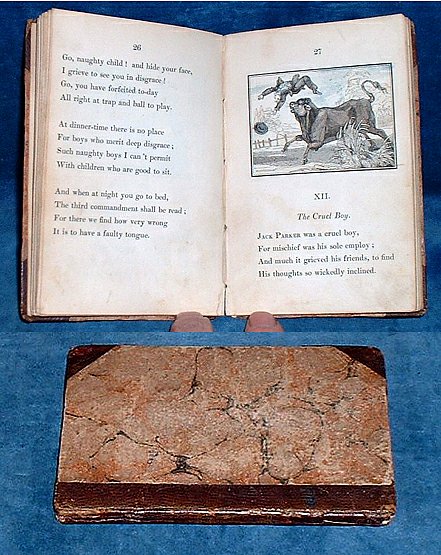 26
Go, naughty child! and hide your face,
I grieve to see you in disgrace!
Go, you have forfeited to-day
All right at trap and ball to play.
At dinner-time there is no place
For boys who merit deep disgrace;
Such naughty boys I can't permit
With children who are good to sit.
And when at night you go to bed,
The third commandment shall be read;
For there we find how very wrong
It is to have a faulty tongue.
27
XII.
The Cruel Boy.
Jack Parker was a cruel boy,
For mischief was his sole employ;
And much it grieved his friends, to find
His thoughts so wickedly inclined.